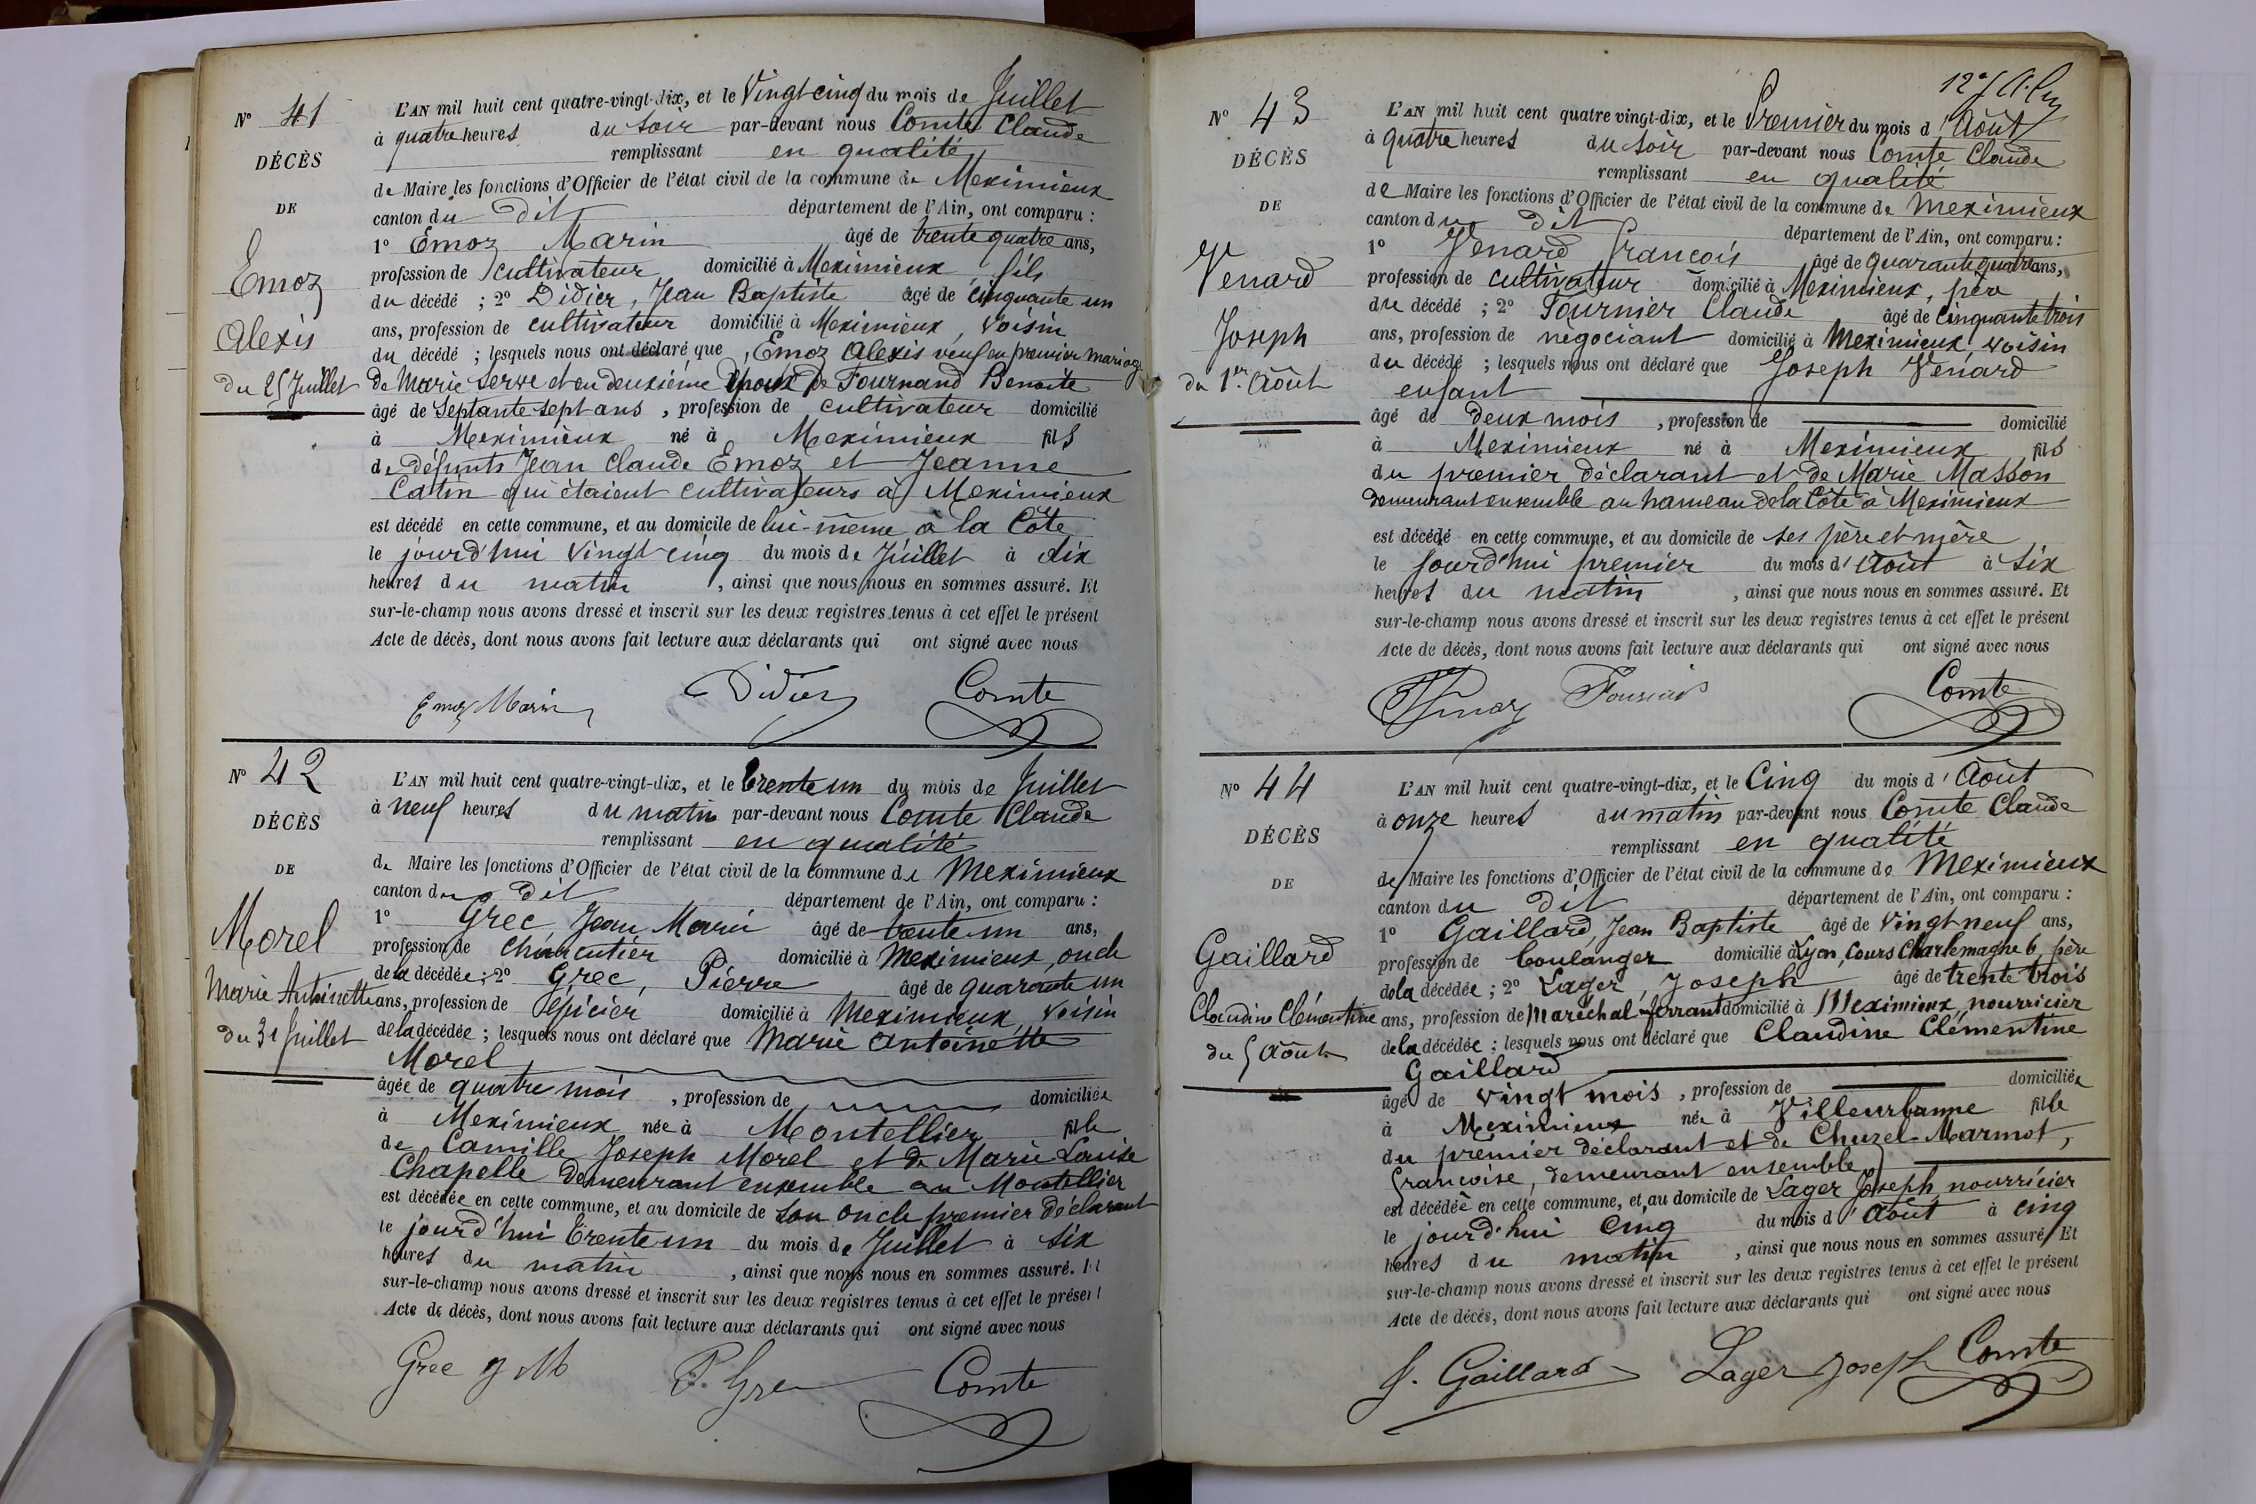 N° 41
DÉCÈS
DE
Emoz
Alexis
du 25 Juillet
L'AN mil huit cent quatre-vingt-dix, et le Vingt cinq du mois de Juillet
à quatre heures du soir par-devant nous Comte Claude
remplissant en qualité
de Maire les fonctions d'Officier de l'état civil de la commune de Meximieux
canton du dit département de l'Ain, ont comparu :
1° Emoz Marin âgé de trente quatre ans,
profession de cultivateur domicilié à Meximieux, fils
du décédé ; 2° Didier, Jean Baptiste âgé de cinquante un
ans, profession de cultivateur domicilié à Meximieux, voisin
du décédé ; lesquels nous ont déclaré que, Emoz Alexis veuf en premier mariage
de Marie Serve et en deuxième époux de Fournand Benoite
âgé de septante sept ans, profession de cultivateur domicilié
à Meximieux né à Meximieux fils
de défunts Jean Claude Emoz et Jeanne
Catin qui étaient cultivateurs à Meximieux
est décédé en cette commune, et au domicile de lui-même à la Côte
le jourd'hui vingt cinq du mois de Juillet à dix
heures du matin, ainsi que nous nous en sommes assuré. Et
sur-le-champ nous avons dressé et inscrit sur les deux registres tenus à cet effet le présent
Acte de décès, dont nous avons fait lecture aux déclarants qui ont signé avec nous
Emoz Marin Didier Comte
N° 42
DÉCÈS
DE
Morel
Marie Antoinette
du 31 Juillet
L'AN mil huit cent quatre-vingt-dix, et le trente un du mois de Juillet
à neuf heures du matin par-devant nous Comte Claude
remplissant en qualité
de Maire les fonctions d'Officier de l'état civil de la commune de Meximieux
canton du dit département de l'Ain, ont comparu :
1° Grec, Jean Marie âgé de trente un ans,
profession de charcutier domicilié à Meximieux, oncle
de la décédée ; 2° Grec, Pierre âgé de quarante un
ans, profession de épicier domicilié à Meximieux, voisin
de la décédée ; lesquels nous ont déclaré que Marie Antoinette
Morel
âgée de quatre mois, profession de domiciliée
à Meximieux née à Montellier fille
de Camille Joseph Morel et de Marie Louise
Chapelle demeurant ensemble au Montellier
est décédée en cette commune, et au domicile de son oncle premier déclarant
le jourd'hui trente un du mois de Juillet à six
heures du matin, ainsi que nous nous en sommes assuré. Et
sur-le-champ nous avons dressé et inscrit sur les deux registres tenus à cet effet le présent
Acte de décès, dont nous avons fait lecture aux déclarants qui ont signé avec nous
Grec J M P. Grec Comte
N° 43
DÉCÈS
DE
Venard
Joseph
du 1er Août
L'AN mil huit cent quatre vingt-dix, et le Premier du mois d'Août
à quatre heures du soir par-devant nous Comte Claude
remplissant en qualité
de Maire les fonctions d'Officier de l'état civil de la commune de Meximieux
canton du dit département de l'Ain, ont comparu :
1° Venard François âgé de quarante quatre ans,
profession de cultivateur domicilié à Meximieux, père
du décédé ; 2° Fournier Claude âgé de cinquante trois
ans, profession de négociant domicilié à Meximieux voisin
du décédé ; lesquels nous ont déclaré que Joseph Vénard
enfant
âgé de deux mois, profession de domicilié
à Meximieux né à Meximieux fils
du premier déclarant et de Marie Masson
demeurant ensemble au hameau de la Côte à Meximieux
est décédé en cette commune, et au domicile de ses père et mère
le jourd'hui premier du mois d'août à six
heures du matin, ainsi que nous nous en sommes assuré. Et
sur-le-champ nous avons dressé et inscrit sur les deux registres tenus à cet effet le présent
Acte de décès, dont nous avons fait lecture aux déclarants qui ont signé avec nous
Comte
N° 44
DÉCÈS
DE
Gaillard
Claudine Clémentine
du 5 Août
L'AN mil huit cent quatre-vingt-dix, et le Cinq du mois d'Août
à onze heures du matin par-devant nous Comte Claude
remplissant en qualité
de Maire les fonctions d'Officier de l'état civil de la commune de Meximieux
canton du dit département de l'Ain, ont comparu :
1° Gaillard, Jean Baptiste âgé de vingt neuf ans,
profession de boulanger domicilié à Lyon, Cours Charlemagne 6, père
de la décédée ; 2° Lager, Joseph âgé de trente trois
ans, profession de Maréchal-ferrant domicilié à Meximieux, nourricier
de la décédée ; lesquels nous ont déclaré que Claudine Clémentine
Gaillard
âgé de vingt mois, profession de domiciliée
à Meximieux née à Villeurbanne fille
du premier déclarant et de Chuzel-Marmot,
Françoise, demeurant ensemble
est décédée en cette commune, et au domicile de Lager Joseph nourricier
le jourd'hui cinq du mois d'août à cinq
heures du matin, ainsi que nous nous en sommes assuré. Et
sur-le-champ nous avons dressé et inscrit sur les deux registres tenus à cet effet le présent
Acte de décès, dont nous avons fait lecture aux déclarants qui ont signé avec nous
J. Gaillard Lager Joseph Comte